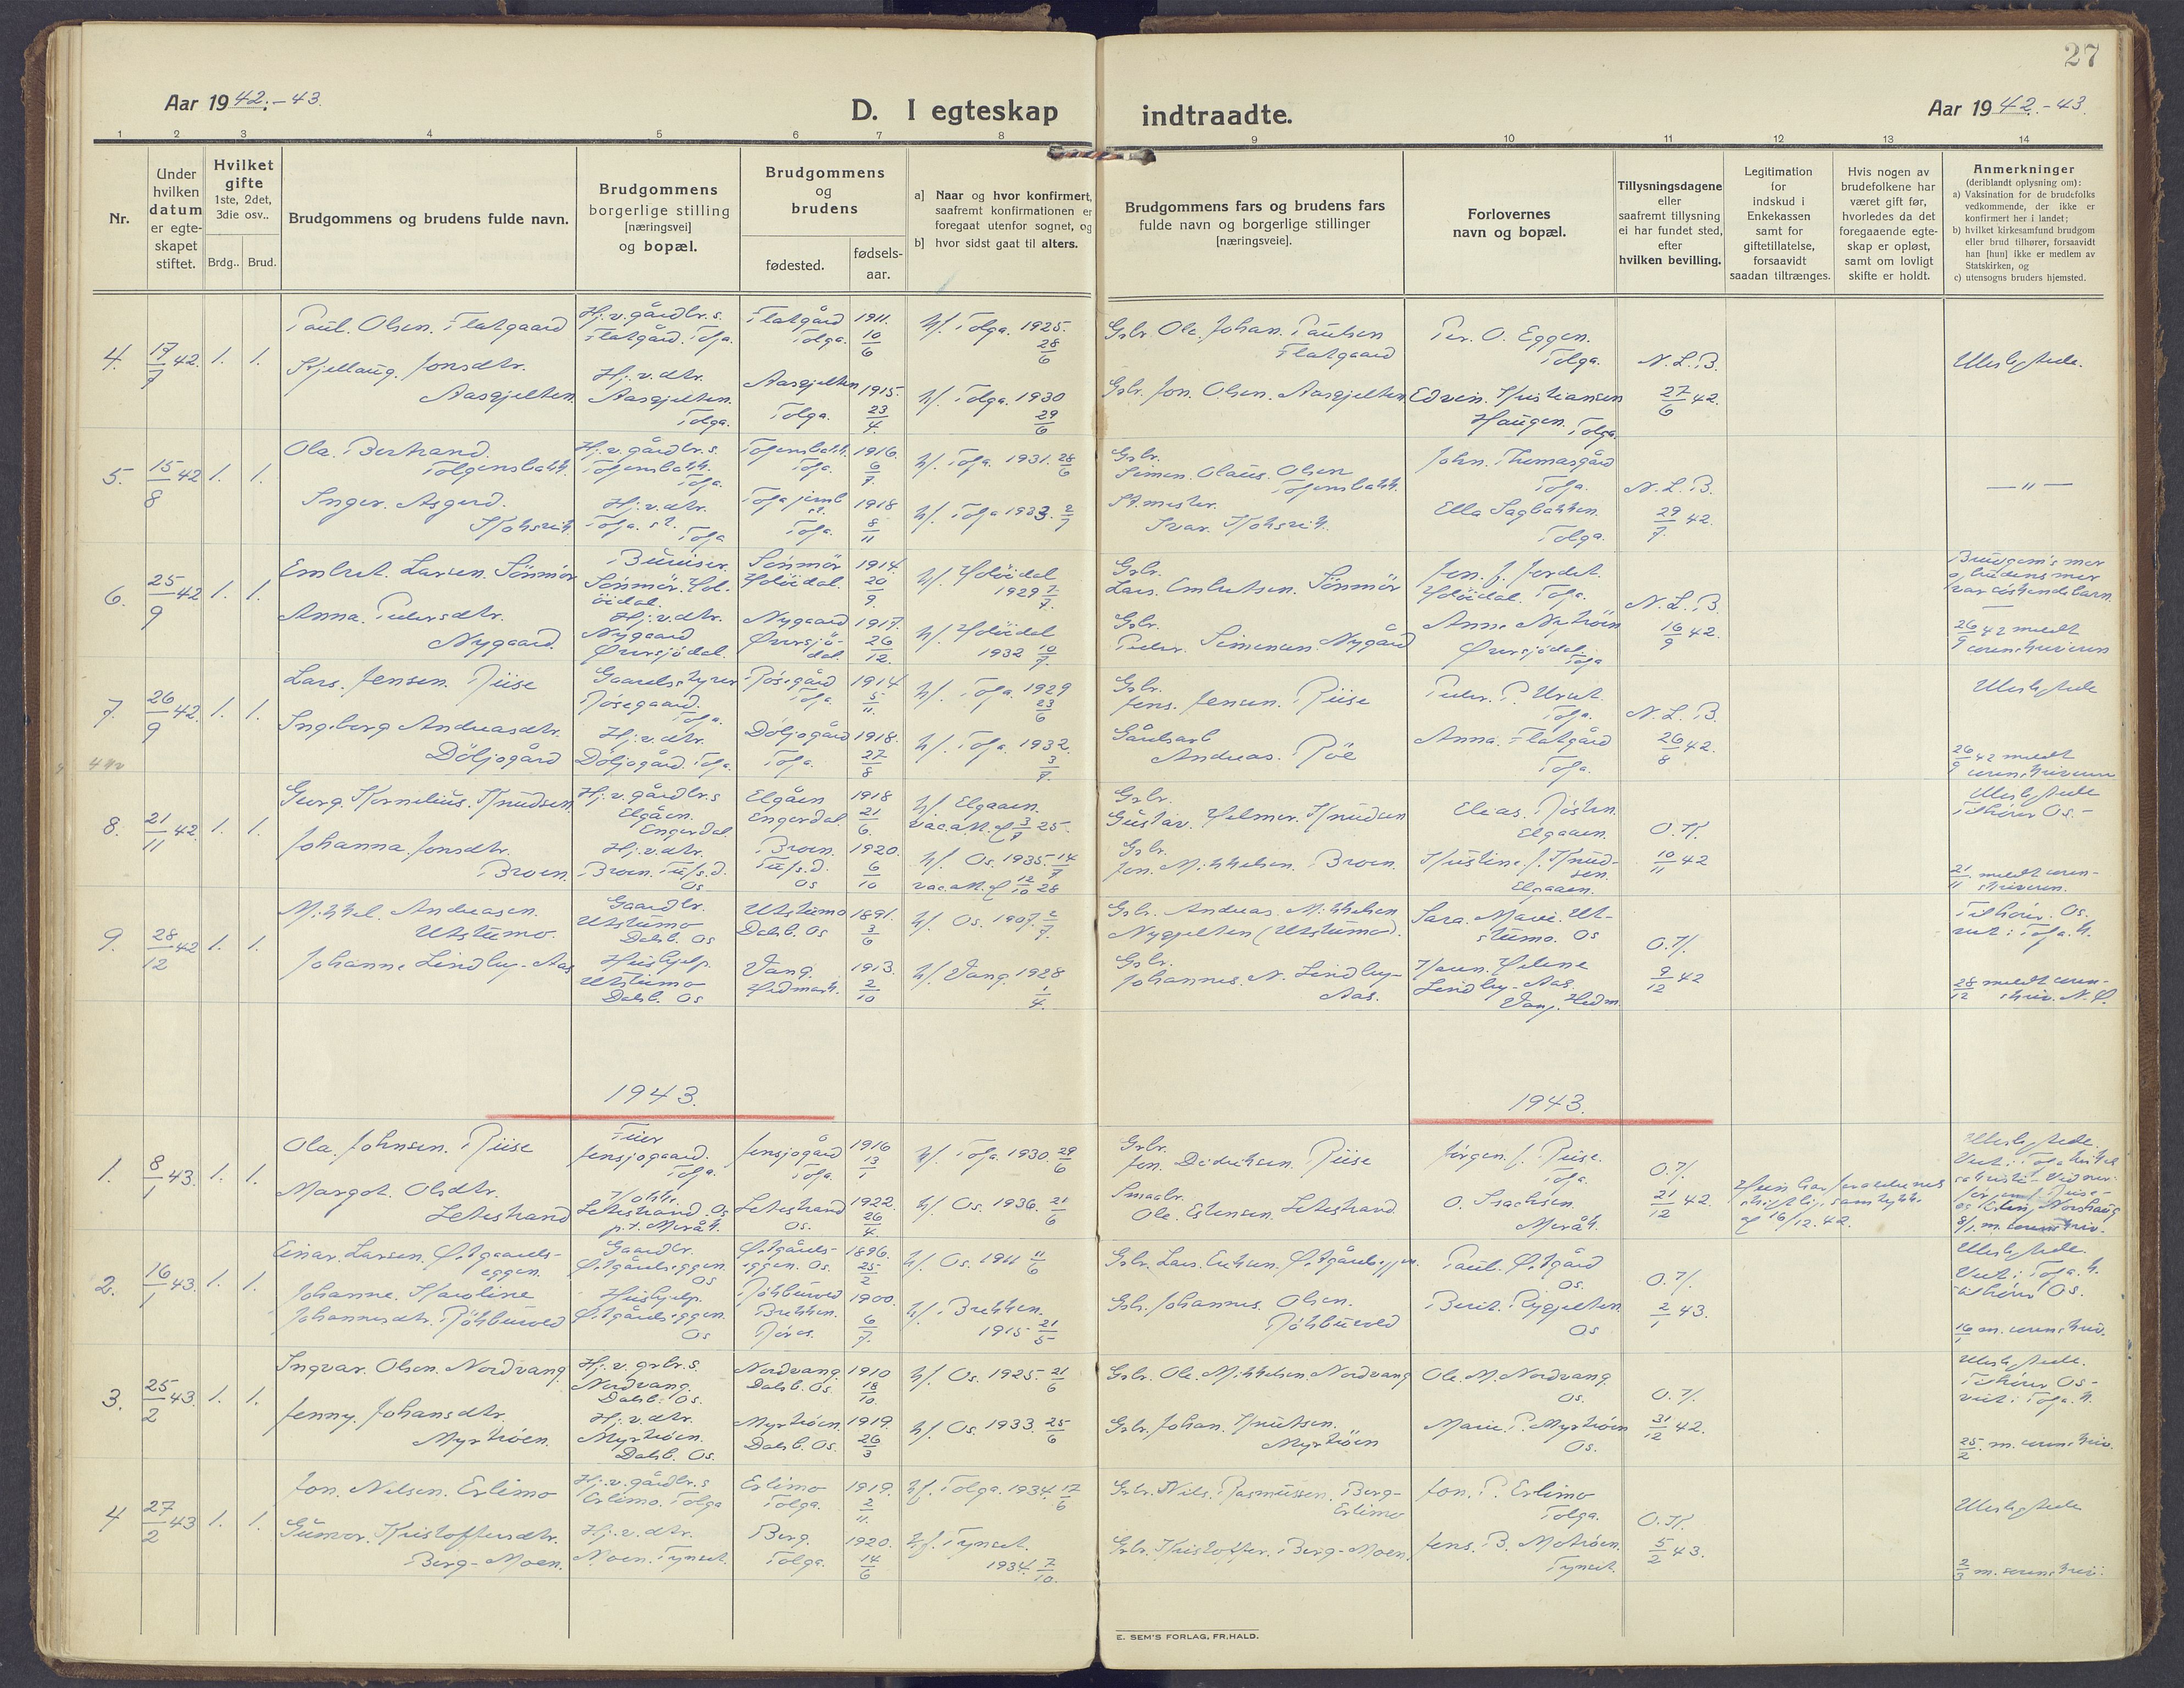 27
Aar 1942.-43.
D. I egteskap
indtraadte.
Aar 1942.-43.
1 2 3 4 5 6 7 8 9 10 11 12 13 14
Nr.
Under
hvilken
datum
er egte-
skapet
stiftet.
Hvilket
gifte
1ste, 2det,
3die osv..
Brdg.. Brud.
Brudgommens og brudens fulde navn.
Brudgommens
borgerlige stilling
[næringsvei]
og bopæl.
Brudgommens
og
brudens
fødested.
fødsels-
aar.
a] Naar og hvor konfirmert,
saafremt konfirmationen er
foregaat utenfor sognet, og
b] hvor sidst gaat til alters.
Brudgommens fars og brudens fars
fulde navn og borgerlige stillinger
[næringsveie].
Forlovernes
navn og bopæl.
Tillysningsdagene
eller
saafremt tillysning
ei har fundet sted,
efter
hvilken bevilling.
Legitimation
for
indskud i
Enkekassen
samt for
giftetillatelse,
forsaavidt
saadan tiltrænges.
Hvis nogen av
brudefolkene har
været gift før,
hvorledes da det
foregaaende egte-
skap er opløst,
samt om lovligt
skifte er holdt.
Anmerkninger
(deriblandt oplysning om):
a) Vaksination for de brudefolks
vedkommende, der ikke er
konfirmert her i landet;
b) hvilket kirkesamfund brudgom
eller brud tilhører, forsaavidt
han [hun] ikke er medlem av
Statskirken, og
c) utensogns bruders hjemsted.
4. 17/7 42. 1. 1.
Paul. Olsen. Flatgaard
Hj. v. gårdbr. s.
Flatgård. Tolga.
Flatgård
Tolga.
1911.
10/6
kf. Tolga. 1925.
28/6
Grbr. Ole. Johan. Paulsen
Flatgaard
Per. O. Eggen.
Tolga.
N. L. B.
27/6 42.
Kjellaug. Jonsdtr.
Aasgjelten.
Hj. v. dtr.
Aasgjelten.
Tolga.
Aasgjelten
Tolga.
1915.
23/4.
kf. Tolga. 1930
29/6
Grbr. Jon. Olsen. Aasgjelten
Edvin. Kristiansen
Haugen. Tolga.
5. 15/8 42 1. 1.
Ola. Bertrand.
Tolgensbakk.
Hj. v. gårdbr. s.
Tolgensbakk.
Tolga.
1916.
6/7
kf. Tolga. 1931. 28/6
Grbr.
Simen. Olaus. Olsen
Tolgensbakk.
John. Thomasgård
Tolga.
N. L. B.
29/7 42.
— " —
Inger. Asgerd.
Hj. v. dtr.
Tolga. st. Tolga
1918
8/11
kf. Tolga 1933. 2/7
Ella Sagbakken.
Tolga.
6. 25/9 42 1. 1.
Embret. Larsen. Sönmör
Bureiser.
Sönmör. Hol-
öidal.
Sönmör
Holöidal.
1914.
20/9.
kf. Holöidal
1929 7/7.
Grbr.
Lars. Embretsen. Sönmör
Jon. J. Jordet.
Holöidal. Tolga.
N. L. B.
16/9 42.
Brudgom's mor
og brudens mor
var söskendebarn.
Anna. Pedersdtr.
Nygaard.
Hj. v. dtr.
Nygaard
Øversjödal.
Nygaard
Øversjö-
dal.
1917.
26/12.
kf. Holöidal
1932 10/7.
Grbr.
Peder. Simensen. Nygård
Øversjödal.
Tolga
26/9 42 meldt
sorenskriveren
7. 26/9 42. 1. 1.
Lars. Jensen. Riise
Gaardsstyrer
Tolga.
1914
5/11.
kf. Tolga. 1929
23/6
Grbr.
Jens. Jensen. Riise
Tolga.
N. L. B.
26/8 42.
Ingeborg Andreasdtr.
Döljogård
Hj. v. dtr.
Döljogård. Tolga.
Döljogård
Tolga.
1918.
27/8
kf. Tolga. 1932.
3/7.
Gårdsarb
Andreas. Röe
Anna. Flatgård
Tolga.
26/9 42 meldt
sorenskriveren
8. 21/11 42. 1. 1.
Georg. Kornelius. Knudsen.
Hj. v. gårdbr. s
Elgåen.
Engerdal
Elgåen
Engerdal
1918
21/6.
kf. Elgaaen.
Grbr.
Gustav. Helmer. Knudsen
Elias. Røsten.
Elgaaen.
O. K.
10/11 42
Tilhörer Os.-
Johanna Jonsdtr.
Broen.
Hj. v. dtr.
Broen. Tufs. d.
Os
Broen.
Tufs. d.
Os
1920.
6/10
kf. Os. 1935. 14/7
Grbr.
Jon. Mikkelsen. Broen.
Kristine J. Knud-
sen.
Elgaaen.
21/11 meldt soren-
skriveren.
9. 28/12 42 1. 1.
Mikkel. Andreasen.
Utstumo.
Gaardbr.
Utstumo
Dalsb. Os
Utstumo
Dalsb. Os
1891.
3/6
kf. Os. 1907. 2/7.
Grbr. Andreas. Mikkelsen
Nygjelten (Utstumo).
Sara. Marie. Ut-
stumo. Os
O. K.
9/12 42
Tilhörer. Os.
Johanne Lindby-Aas
Hushjelp.
Utstumo
Dalsb. Os
Vang.
Hedmark.
1913.
2/10
kf. Vang. 1928
1/4.
Grbr.
Johannes. N. Lindby-
Aas.
Karen. Helene
Lindby-Aas.
Vang. Hedm.
28/12 meldt soren-
skriv. N. Ø.
1943.
1943.
1. 8/1 43. 1. 1.
Ola. Johnsen. Riise
Jensjogaard.
Tolga.
Jensjogård
Tolga.
1916
13/1
kf. Tolga. 1930. 29/6
Grbr.
Jon. Didriksen. Riise
Jørgen. J. Riise.
Tolga.
O. K.
21/12 42.
Ubeslegtede.
Margot. Olsdtr.
Letestrand
Letestrand. Os
p.t. Meråk.
Letestrand
Os.
1922.
26/4.
kf. Os. 1936. 21/6
Smaabr.
Ole. Estensen. Letestrand.
O. Isachsen.
Meråk.
Hun har foreldrenes
skriftlig. samtykke
af 16/12. 42.
2. 16/1 43. 1. 1.
Einar. Larsen. Østgaards-
eggen.
Gaardbr.
Østgårdseggen.
Os
Østgårds-
eggen. Os.
1896.
25/2
kf. Os. 1911 11/6
Grbr. Lars. Eriksen. Østgårdseggen.
Paul. Østgård
Os.
O. K.
2/1 43.
Ubeslegtede.
Viet i Tolga. k.
tilhörer Os.
Johanne. Karoline
Johannesdtr. Röhburvold
Hushjelp.
Østgårdseggen.
Os
Brekken.
Röros.
1900.
6/7.
kf. Brekken.
1915 21/5
Gbr. Johannes. Olsen.
Berit. Rygjelten
Os
16/1 m. sorenskriv.
3. 25/2 43. 1. 1.
Ingvar. Olsen. Nordvang
Hj. v. grbr. s.
Nordvang.
Dalsb. Os.
Nordvang.
Dalsb. Os.
1910
18/10.
kf. Os. 1925. 21/6
Grbr. Ole. Mikkelsen Nordvang
Ole. M. Nordvang
Os.
O. K.
31/12 42.
Ubeslegtede.
Tilhörer Os-
viet i Tolga. k.
Jenny. Johansdtr.
Myrtröen.
Hj. v. dtr.
Myrtröen.
Dalsb. Os.
Myrtröen.
Dalsb. Os.
1919.
26/3
kf. Os. 1933. 25/6
Grbr. Johan. Knutsen.
Myrtröen
Marie. P. Myrtröen
Os.
25/2. m. sorenskriv.
4 27/2 43 1. 1.
Jon. Nilsen. Erlimo
Hj. v. gårdbr. s
Erlimo. Tolga
Erlimo
Tolga.
1919.
2/11.
kf. Tolga. 1934. 17/6
Grbr. Nils. Rasmussen. Berg-
Erlimo
Jon. P. Erlimo
Tolga.
O. K.
5/2 43.
Ubeslegtede
Gunvor. Kristoffersdtr.
Berg-Moen.
Hj. v. dtr.
Moen. Tynset.
Berg.
Tolga.
1920.
14/6
kf. Tynset.
1934. 7/10.
Grbr. Kristoffer. Berg-Moen.
Jens. B. Motröen.
Tynset.
2/3 m. sorenskriv.
E. SEM'S FORLAG, FR.HALD.